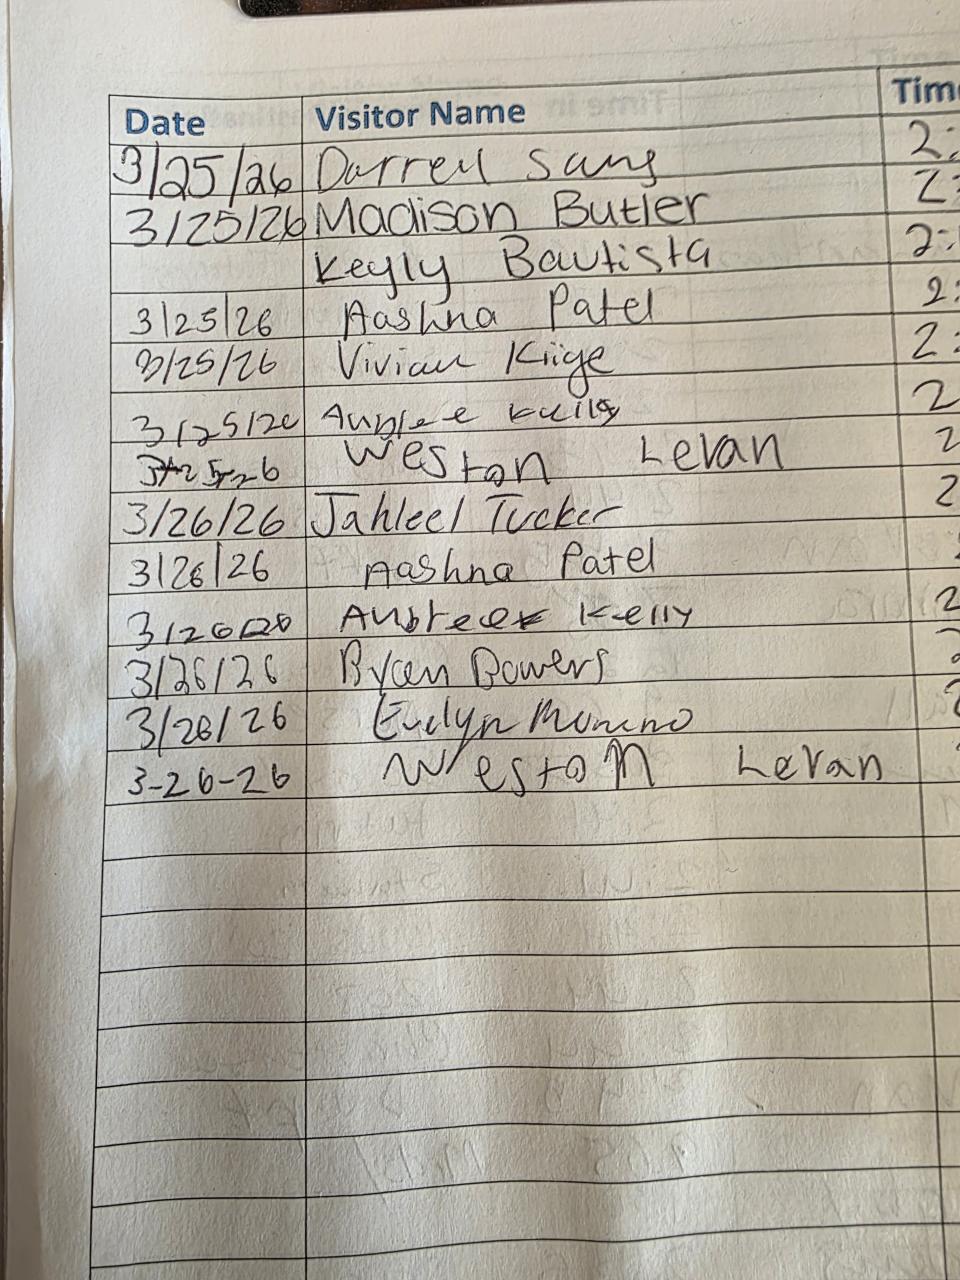 Date Visitor Name Time
3/25/26 Darrell Sang 2:
3/25/26 Madison Butler 2:
Keyly Bautista 2:
3/25/26 Aashna Patel 2:
3/25/26 Vivian Kiige 2:
3/25/26 Aubree Kelly 2
Weston Levan 2
3/26/26 Jahleel Tucker 2
3/26/26 Aashna Patel
3/26/26 Aubree Kelly 2
3/26/26 Ryan Bowers 2
3/26/26 Evelyn Moreno 2
3-26-26 Weston Levan